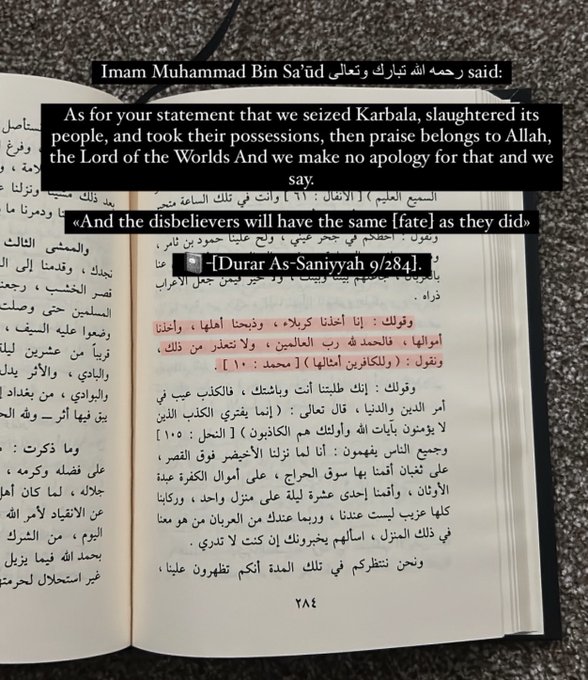 Imam Muhammad Bin Sa'ūd رحمه الله تبارك وتعالى said:
As for your statement that we seized Karbala, slaughtered its
people, and took their possessions, then praise belongs to Allah,
the Lord of the Worlds And we make no apology for that and we
say.
«And the disbelievers will have the same [fate] as they did»
-[Durar As-Saniyyah 9/284].
السميع العليم ) [ الأنفال : ٦١ ] وأنت في تلك الساعة متحير
ذراه .
وقولك : إنا أخذنا كربلاء ، وذبحنا أهلها ، وأخذنا
أموالها ، فالحمد لله رب العالمين ، ولا نتعذر من ذلك ،
ونقول : ( وللكافرين أمثالها ) [ محمد : ١٠ ] .
وقولك : إنك طلبتنا أنت وباشتك ، فالكذب عيب في
أمر الدين والدنيا ، قال تعالى : ( إنما يفتري الكذب الذين
لا يؤمنون بآيات الله وأولئك هم الكاذبون ) [ النحل : ١٠٥ ]
وجميع الناس يفهمون : أنا لما نزلنا الأخيضر فوق القصر ،
على ثغبان أقمنا بها سوق الحراج ، على أموال الكفرة عبدة
الأوثان ، وأقمنا إحدى عشرة ليلة على منزل واحد ، وركابنا
كلها عزيب ليست عندنا ، وربما عندك من العربان من هو معنا
في ذلك المنزل ، اسألهم يخبرونك إن كنت لا تدري .
ونحن ننتظركم في تلك المدة أنكم تظهرون علينا ،
٢٨٤
والممشى الثالث
نجدك ، وقدمنا إلى
قصر الخشب ، رجعنا
المسلمين حتى وصلت
وضعوا عليه السيف ،
قريباً من عشرين ليلة
والبادي ، والأثر يدل
والبوادي ، من بغداد إ
يبق فيها أثر ــ ولله الح
وما ذكرت :
على فضله وكرمه ،
جلاله ، لما كان أهل
عن الانقياد لأمر الله
اليوم ، من الشرك
بحمد الله فيما يزيل
غير استحلال لحرمته